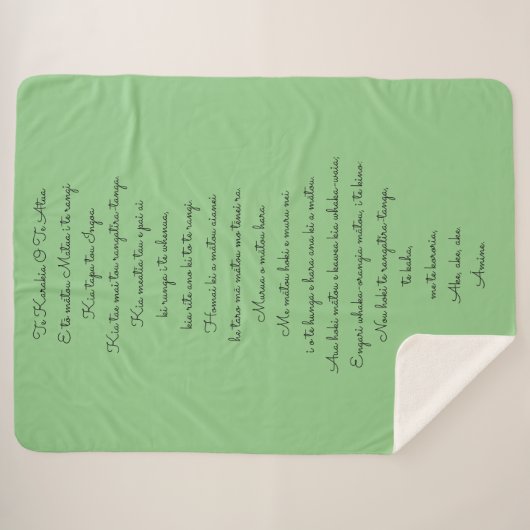 Te Karakia O Te Atua
E to mátou Matua i te rangi
Kia tapu tou Ingoa.
Kia tae mai tou rangatira-tanga.
Kia meatia tau e pai ai
ki runga i te whenua,
kia rite ano ki to te rangi.
Homai ki a matou aianei
he taro má mátou mo ténei ra.
Murua o mátou hara
Me mátou hoki e muru nei
i o te hunga e hara ana ki a mátou.
Aua hoki mátou e kawea kia whaka-waia;
Engari whaka-orangia mátou, i te kino:
Nou hoki te rangatira-tanga,
te kaha,
me te kororia,
Ake, ake, ake.
Amine.